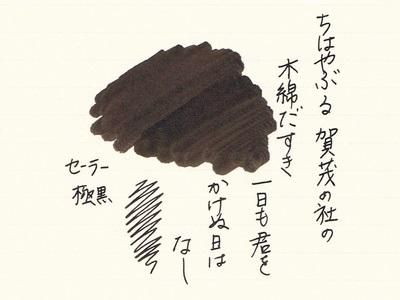 ちはやぶる 賀茂の社の
木綿だすき
一日も君を
かけぬ日は
なし
セーラー
極黒